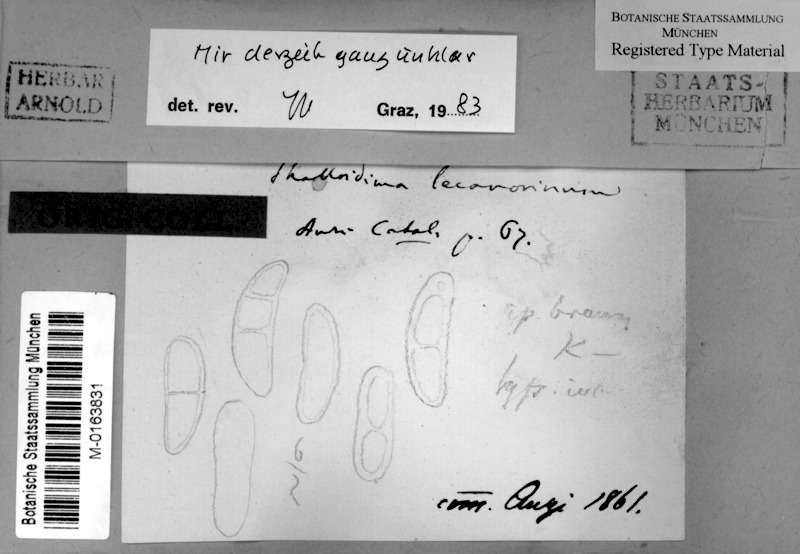 Mir derzeit ganz unklar
det. rev. Graz, 19 83
BOTANISCHE STAATSSAMMLUNG
MÜNCHEN
Registered Type Material
HERBAR
ARNOLD
STAATS-
HERBARIUM
MÜNCHEN
Thalloidima lecanorinum
Anzi Catal. p. 67.
sp. braun
K –
hyp. inc.
com. Anzi 1861.
Botanische Staatssammlung München
M-0163831